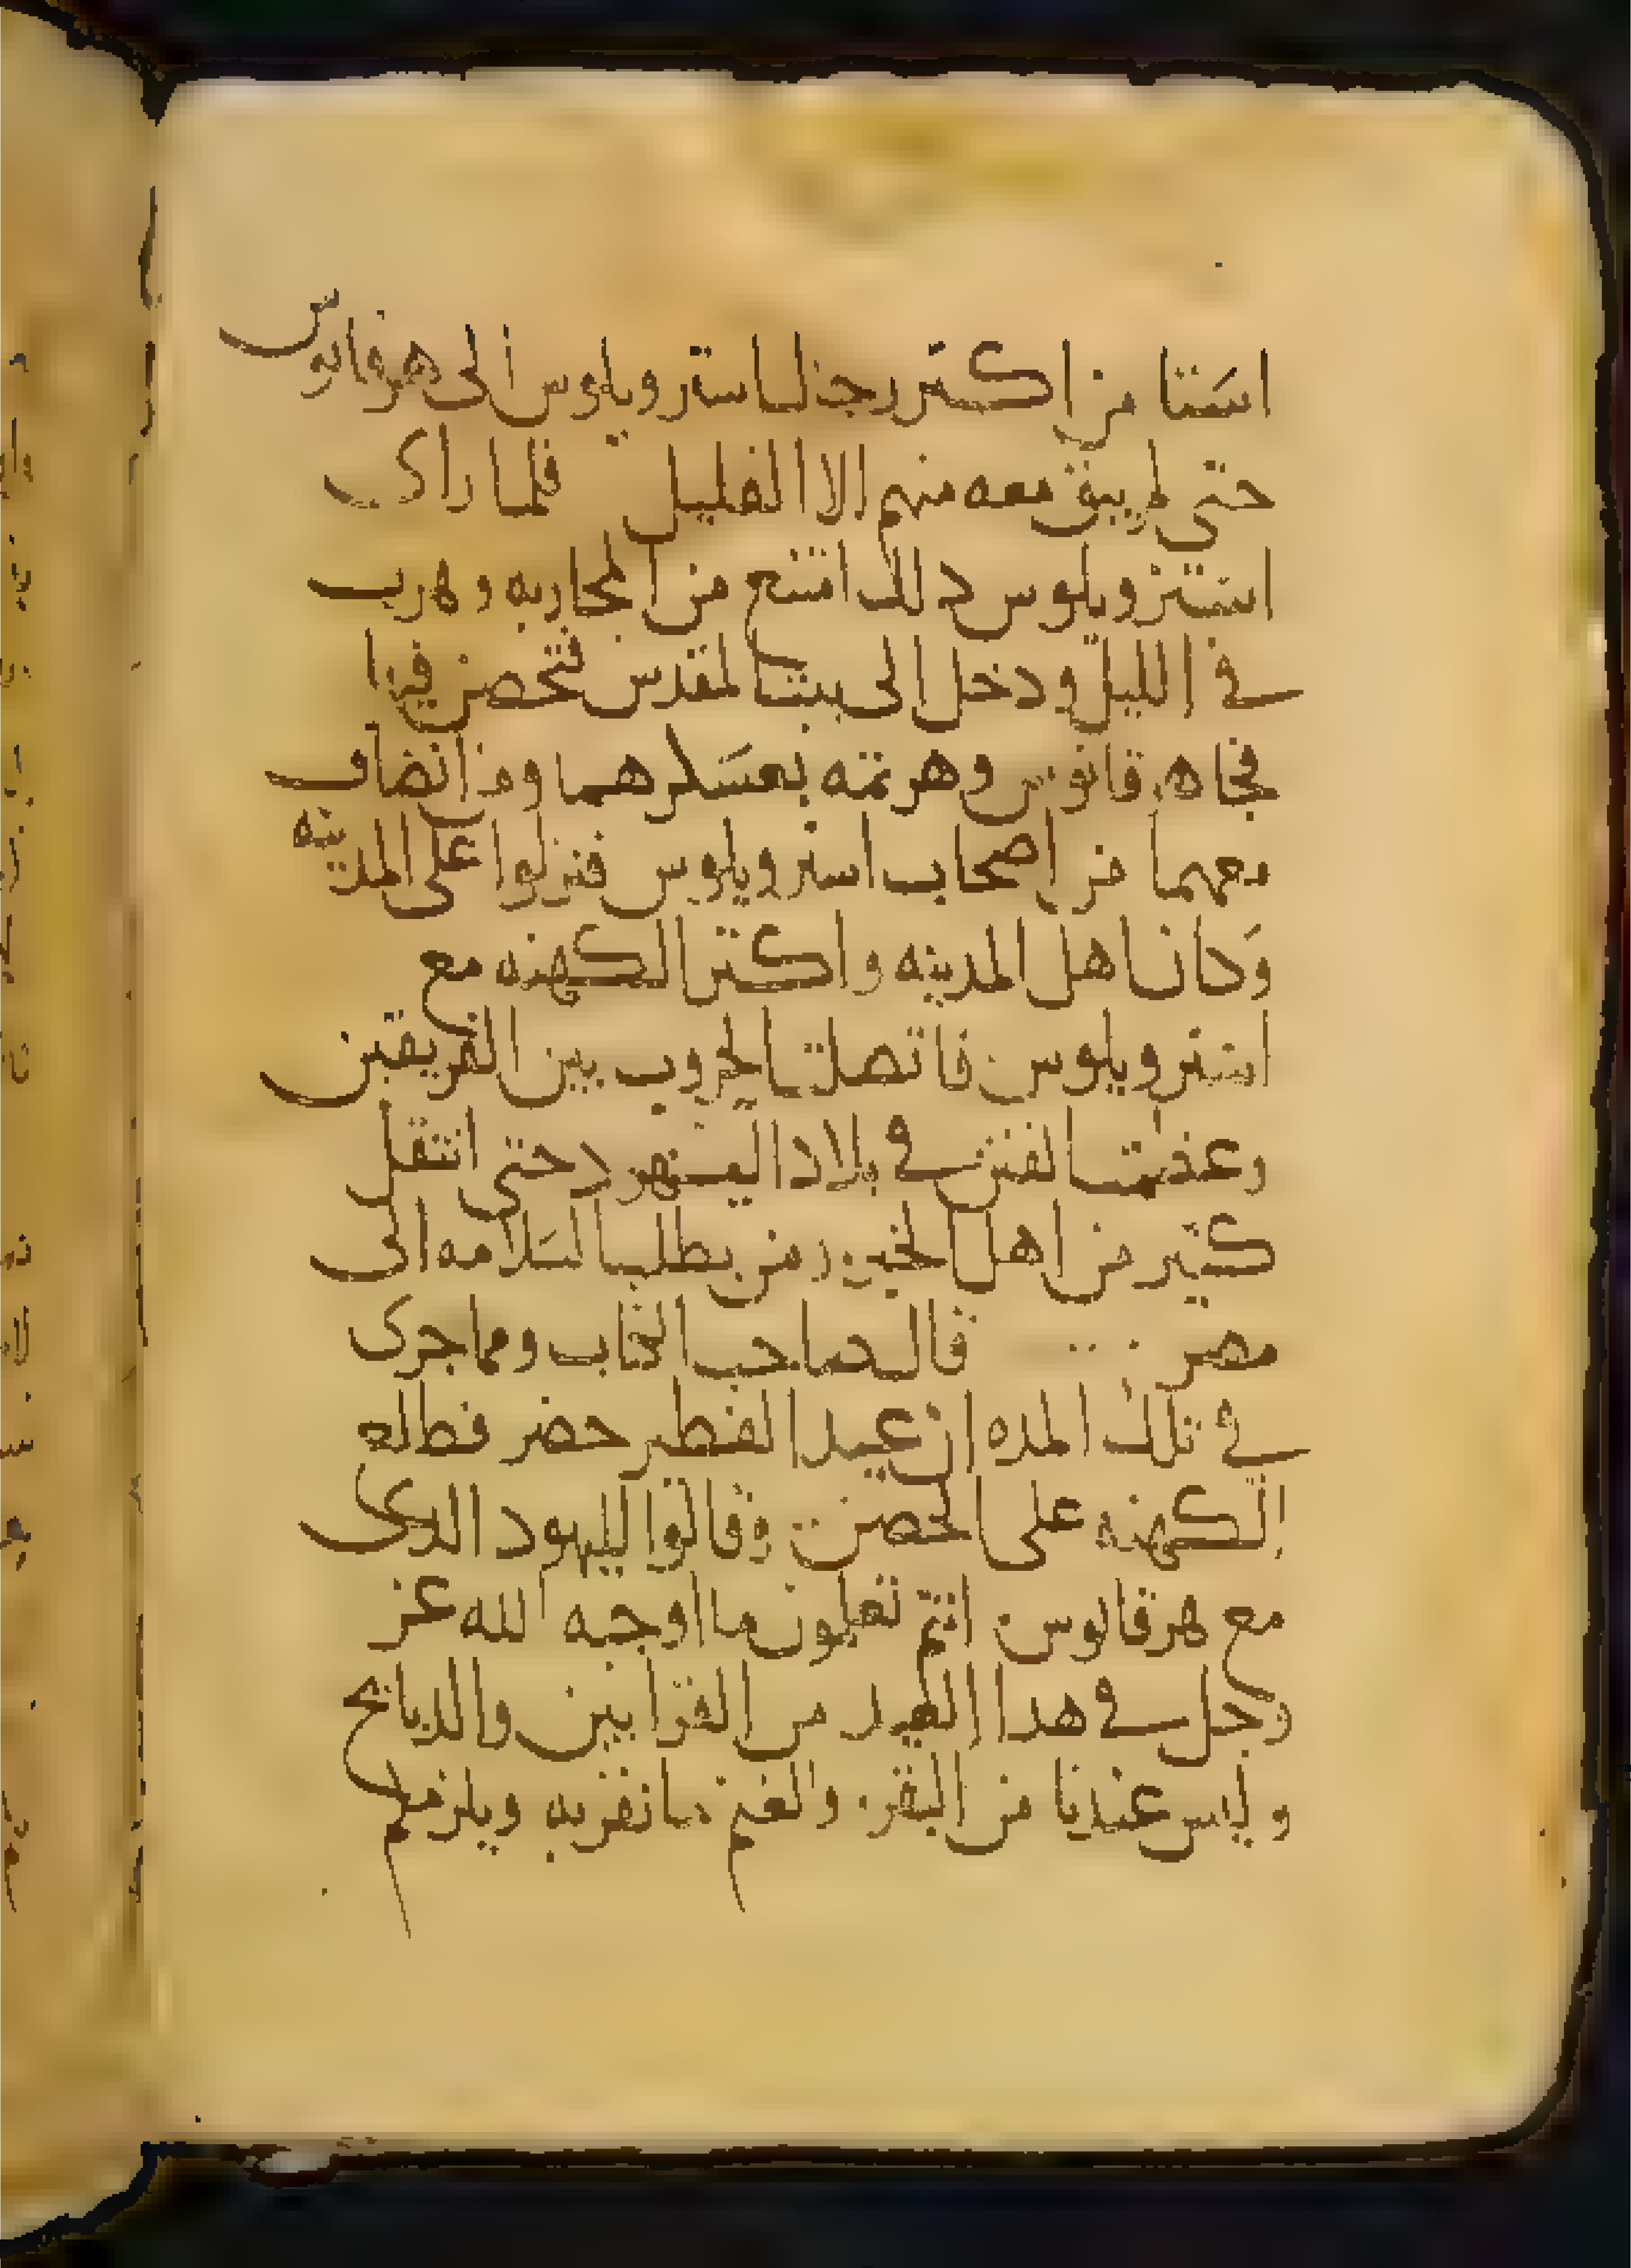 استنا من اكتر رجال استروبلوس الى هرقانوس
حتى لم يبق معه منهم الا القليل فلما راى
استروبلوس دلك امتنع من المحاربه وهرب
في الليل ودخل الى بيت المقدس فتحصن فيها
فجاه هرقانوس وهرتمه بعسكرهما ومن انضاف
معهما من اصحاب استروبلوس فنزلوا على المدينه
وكان اهل المدينه واكتر الكهنه مع
استروبلوس فاتصلت الحروب بين الفريقين
وعظمت الفتن في بلاد اليهود حتى انتقل
كتير من اهل الخير ومن يطلب السلامه الى
مصر قال صاحب الكتاب ومما جرى
في تلك المده ان عيد الفطر حضر فطلع
الكهنه على الحصن وقالوا لليهود الدى
مع هرقانوس انتم تعلمون ما اوجبه الله عز
وجل في هدا العيد من القرابين والدبايح
وليس عندنا من البقر والغنم ما نقربه ويلزمكم